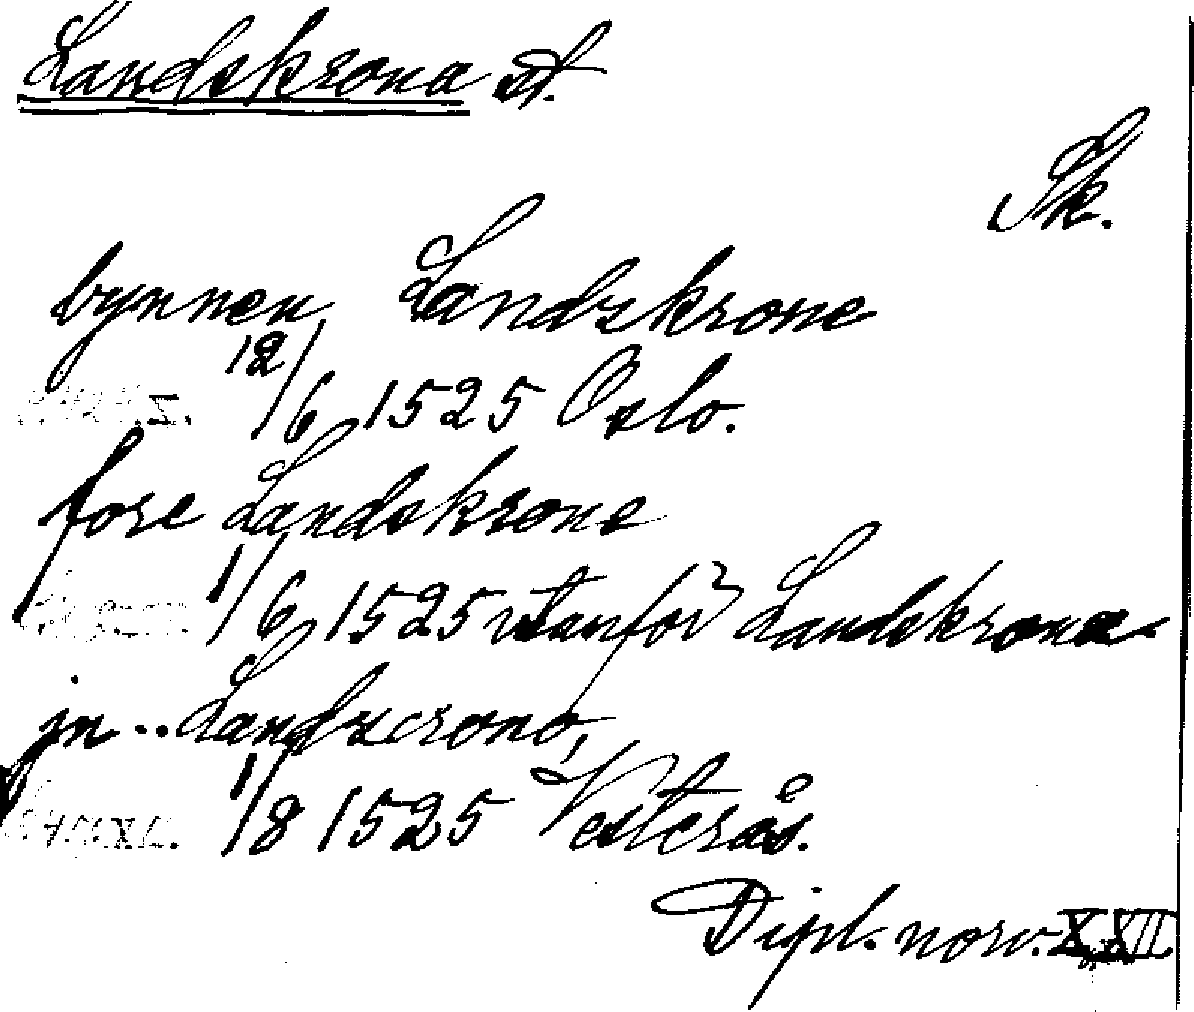 Landskrona st.
Sk.
bynnen Landzkrone
12/6 1525 Oslo.
fore Landskrone
1/6 1525 utanför Landskrona.
jn .. Landzcrono,
1/8 1525 Vesterås.
Dipl. norv. XXII.